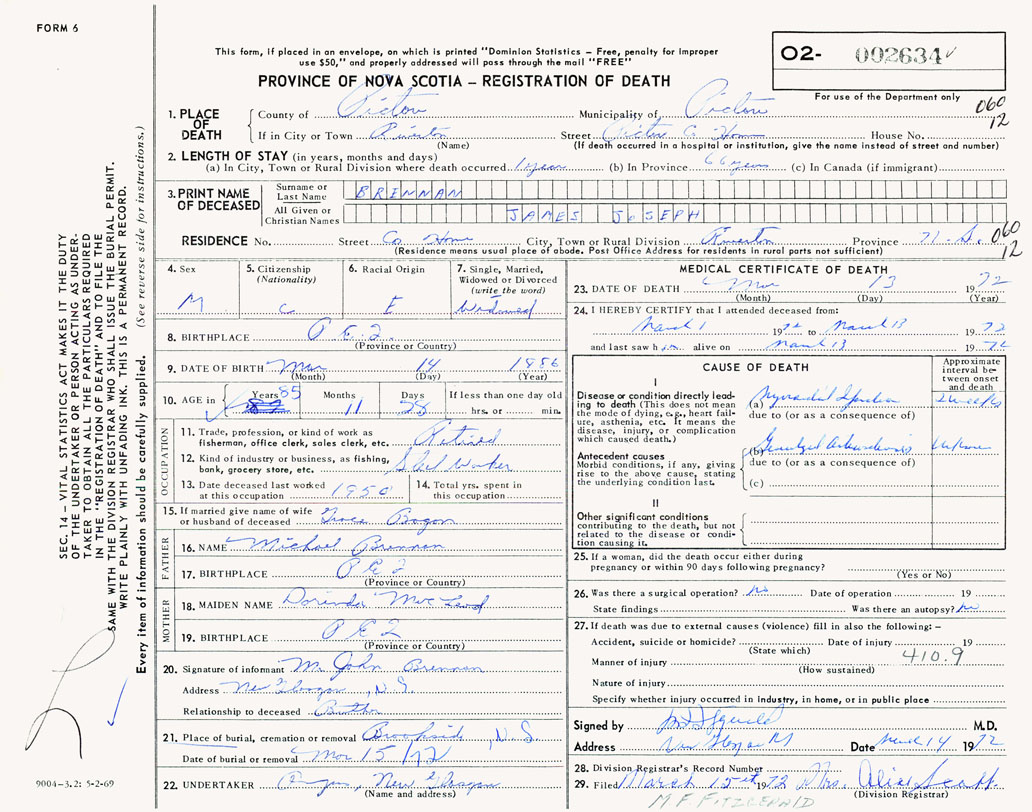 FORM 6
This form, if placed in an envelope, on which is printed "Dominion Statistics – Free, penalty for improper
use $50," and properly addressed will pass through the mail "FREE"
PROVINCE OF NOVA SCOTIA – REGISTRATION OF DEATH
O2- 002634
For use of the Department only
060
12
1. PLACE OF DEATH
County of Pictou Municipality of Pictou
If in City or Town Riverton Street Pictou Co Home House No.
(Name) (If death occurred in a hospital or institution, give the name instead of street and number)
2. LENGTH OF STAY (in years, months and days)
(a) In City, Town or Rural Division where death occurred 1 year (b) In Province 66 years (c) In Canada (if immigrant)
3. PRINT NAME OF DECEASED
Surname or Last Name BRENNAN
All Given or Christian Names JAMES JOSEPH
RESIDENCE No. Street Co Home City, Town or Rural Division Riverton Province N.S.
060
12
(Residence means usual place of abode. Post Office Address for residents in rural parts not sufficient)
4. Sex M
5. Citizenship (Nationality) C
6. Racial Origin E
7. Single, Married, Widowed or Divorced (write the word) Widowed
8. BIRTHPLACE P E I
(Province or Country)
9. DATE OF BIRTH Mar 14 1986
(Month) (Day) (Year)
10. AGE in Years 85 Months 11 Days 28 If less than one day old hrs. or min.
OCCUPATION
11. Trade, profession, or kind of work as fisherman, office clerk, sales clerk, etc. Retired
12. Kind of industry or business, as fishing, bank, grocery store, etc. Steel Worker
13. Date deceased last worked at this occupation 1950
14. Total yrs. spent in this occupation
15. If married give name of wife or husband of deceased
FATHER
16. NAME Michael Brennan
17. BIRTHPLACE P E I
(Province or Country)
MOTHER
18. MAIDEN NAME Dorinda MacLeod
19. BIRTHPLACE P E I
(Province or Country)
20. Signature of informant M. John Brennan
Address New Glasgow, N.S.
Relationship to deceased Brother
21. Place of burial, cremation or removal Brookside, N.S.
Date of burial or removal Mar 15/72
22. UNDERTAKER New Glasgow
(Name and address)
MEDICAL CERTIFICATE OF DEATH
23. DATE OF DEATH Mar 13 1972
(Month) (Day) (Year)
24. I HEREBY CERTIFY that I attended deceased from:
March 1 1972 to March 13 1972
and last saw him alive on March 13 1972
CAUSE OF DEATH
Approximate interval between onset and death
I
Disease or condition directly leading to death (This does not mean the mode of dying, e.g., heart failure, asthenia, etc. It means the disease, injury, or complication which caused death.)
(a) Myocardial Infarction 2 weeks
due to (or as a consequence of)
Antecedent causes
Morbid conditions, if any, giving rise to the above cause, stating the underlying condition last.
(b) Generalized Arteriosclerosis Unknown
due to (or as a consequence of)
(c)
II
Other significant conditions contributing to the death, but not related to the disease or condition causing it.
25. If a woman, did the death occur either during
pregnancy or within 90 days following pregnancy?
(Yes or No)
26. Was there a surgical operation? No Date of operation 19
State findings Was there an autopsy? No
27. If death was due to external causes (violence) fill in also the following: –
Accident, suicide or homicide? Date of injury 19
(State which) 410.9
Manner of injury
(How sustained)
Nature of injury
Specify whether injury occurred in industry, in home, or in public place
Signed by M.D.
Address New Glasgow Date March 14 1972
28. Division Registrar's Record Number
29. Filed March 15th 1972 Mrs. Alice Scott
(Division Registrar)
M F FITZGERALD
SEC. 14 – VITAL STATISTICS ACT MAKES IT THE DUTY
OF THE UNDERTAKER OR PERSON ACTING AS UNDER-
TAKER TO OBTAIN ALL THE PARTICULARS REQUIRED
IN THE "REGISTRATION OF DEATH" AND TO FILE THE
SAME WITH THE DIVISION REGISTRAR WHO SHALL ISSUE THE BURIAL PERMIT.
WRITE PLAINLY WITH UNFADING INK. THIS IS A PERMANENT RECORD.
Every item of information should be carefully supplied. (See reverse side for instructions.)
9004–3.2: 5-2-69